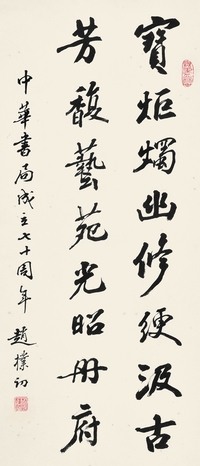 寶炬燭幽修綆汲古
芳馥藝苑光昭冊府
中華書局成立七十周年 趙樸初